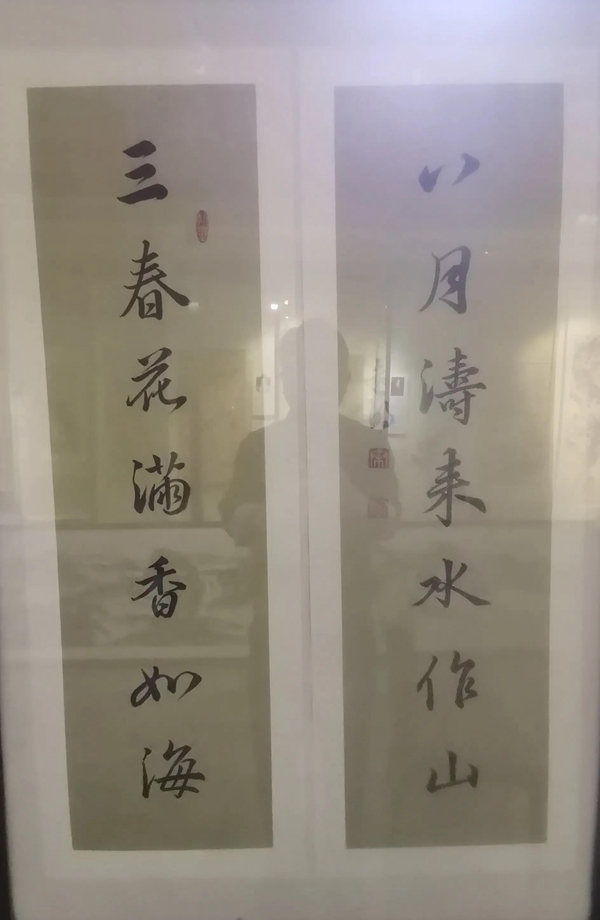 三春花滿香如海
八月濤来水作山